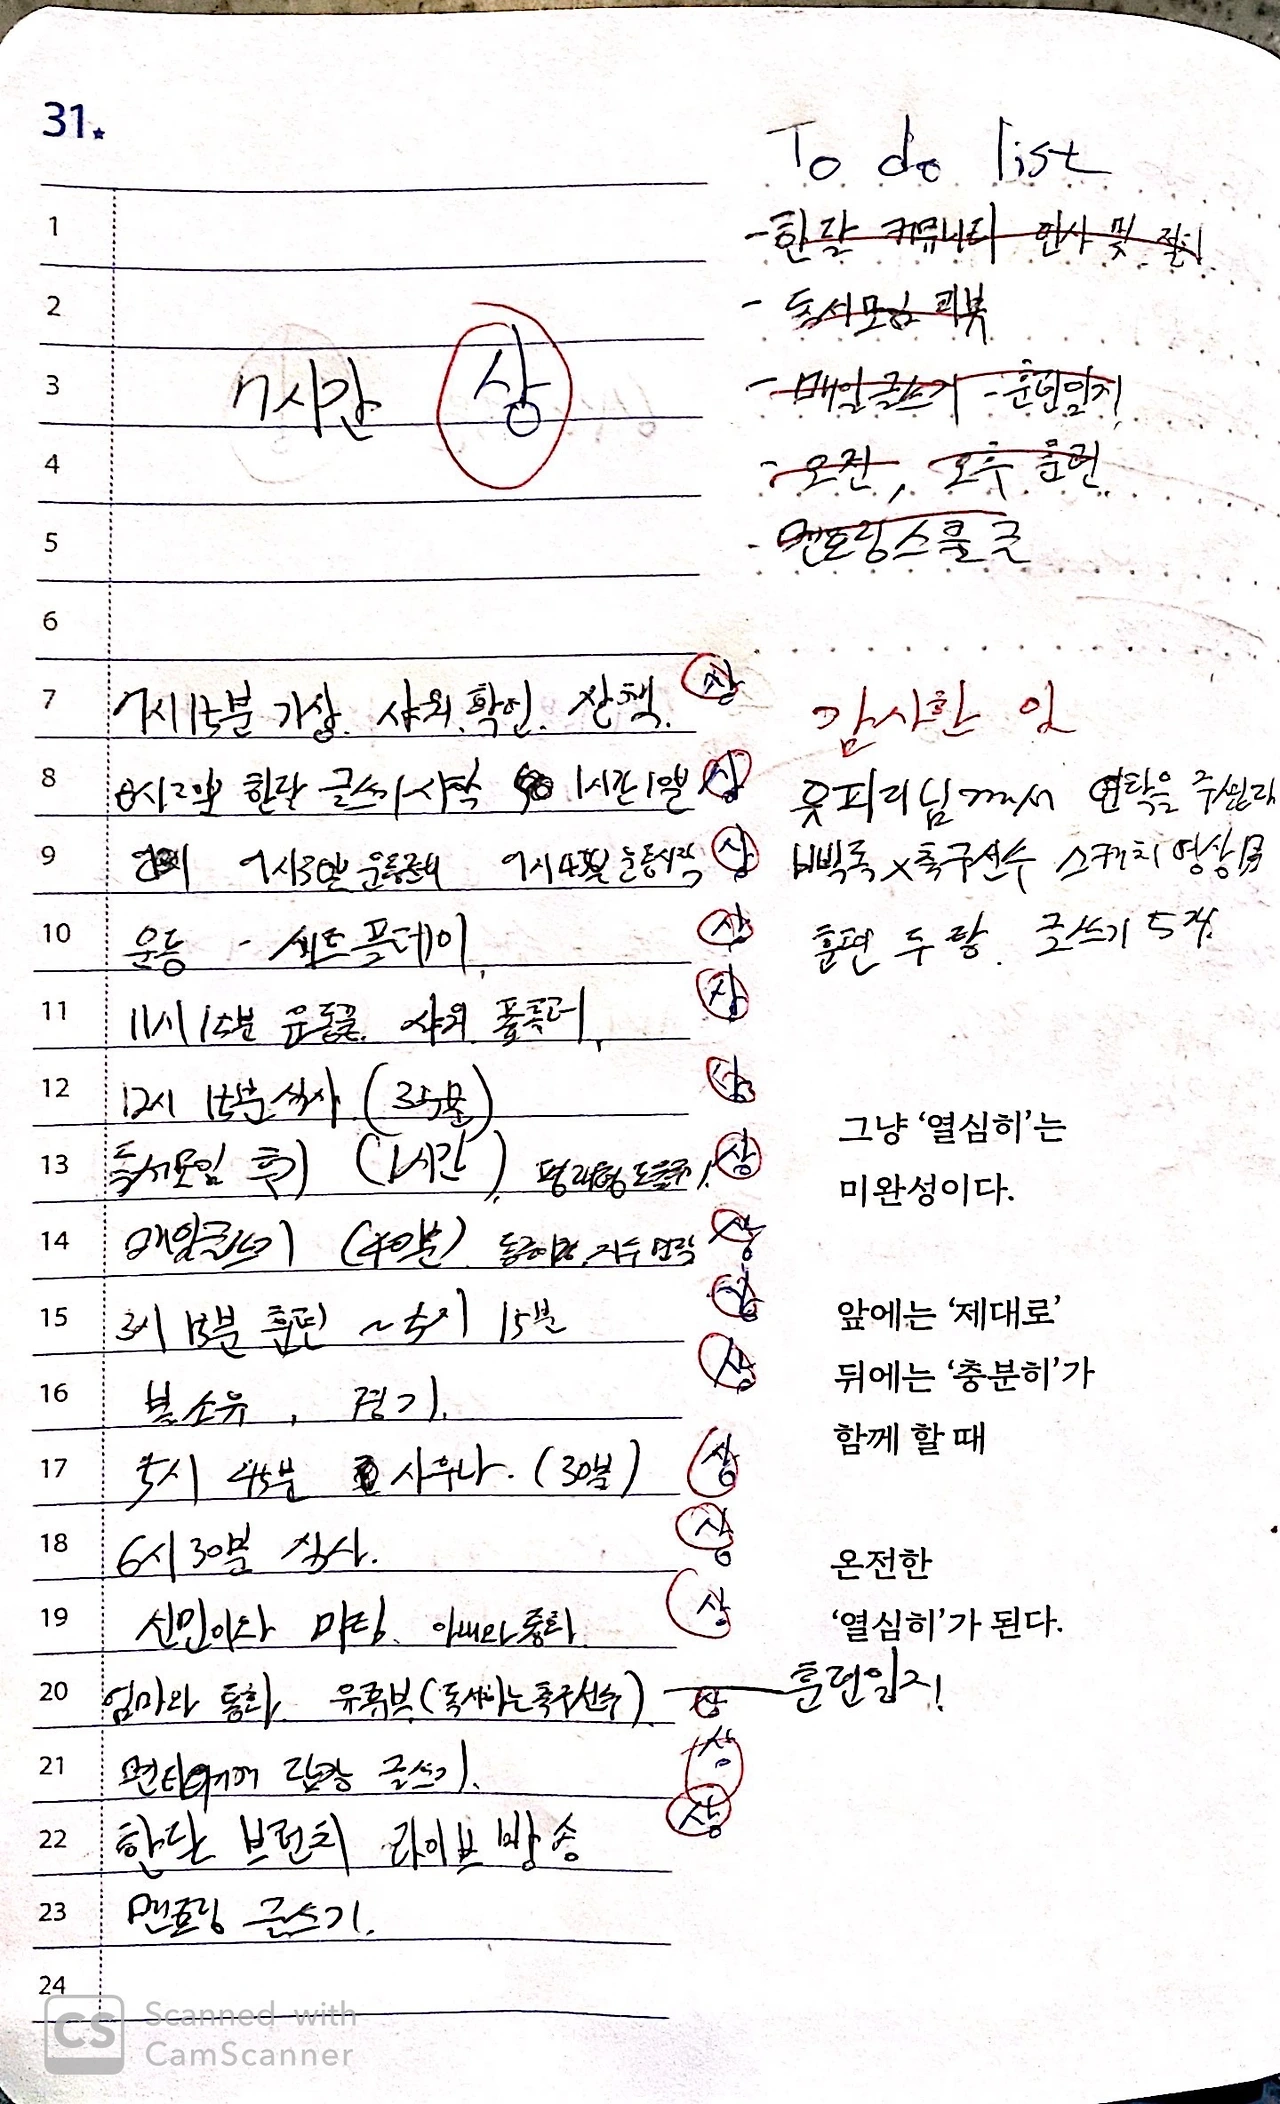 31.
To do list
1
- 한달 커뮤니티 인사 및 질문
2
- 독서모임 리뷰
3
7시간 상
- 매일글쓰기 - 훈련일지
4
- 오전, 오후 훈련
5
- 멘토링스쿨 글
6
7
7시 15분 기상. 샤워. 확언. 산책. 상
감사한 일
8
한달 글쓰기 시작 1시간 1분 상
연락을
9
9시 30분 운동준비 9시 45분 운동시작 상
x 축구선수 스케치 영상
10
운동 - 세트플레이. 상
훈련 두 탕. 글쓰기 5개
11
11시 15분 운동끝. 샤워. 폼롤러. 상
12
12시 15분 식사 (35분) 상
그냥 '열심히'는
13
독서모임 후기 (1시간). 상
미완성이다.
14
매일글쓰기 (40분). 상
15
3시 13분 훈련 ~ 5시 15분 상
앞에는 '제대로'
뒤에는 '충분히'가
16
볼소유, 경기. 상
함께 할 때
17
5시 45분 사우나. (30분) 상
18
6시 30분 식사. 상
온전한
19
신민이와 미팅. 아내와 통화. 상
'열심히'가 된다.
20
엄마와 통화. 유튜브 (독서하는 축구선수) 상 훈련일지!
21
답장 글쓰기. 상
22
한달 브런치 라이브 방송 상
23
멘토링 글쓰기.
24
CS Scanned with
CamScanner